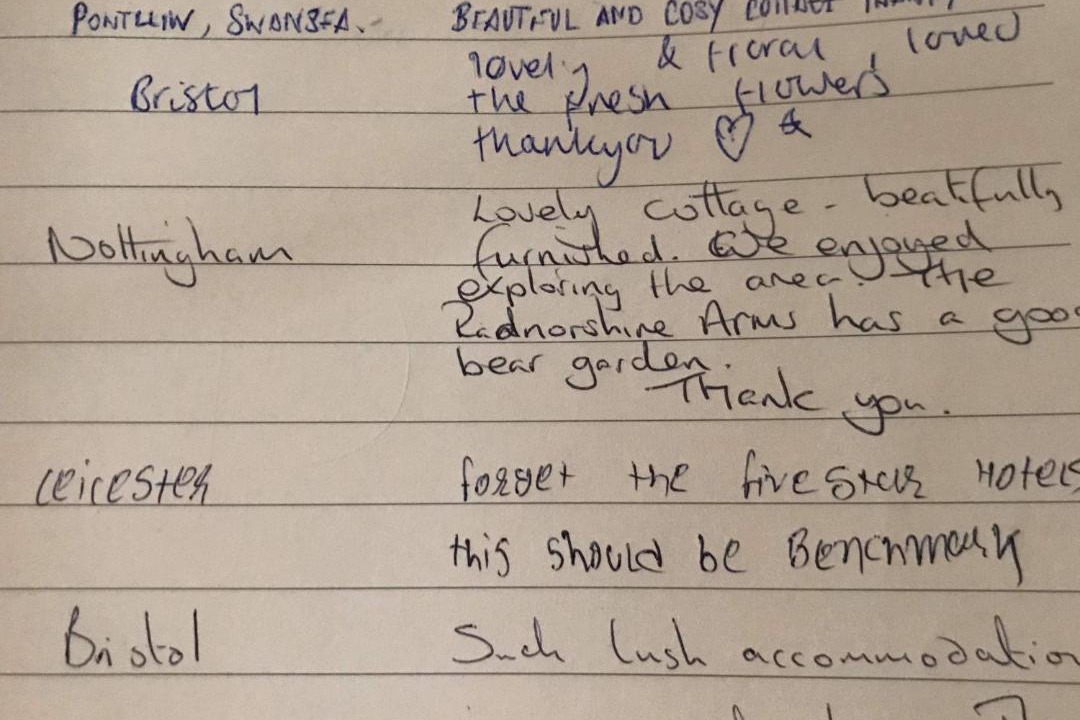 PONTLLIW, SWANSEA. BEAUTIFUL AND COSY COTTAGE
lovely & floral, loved
Bristol the fresh flowers
thankyou ♡ &
Lovely cottage - beatifully
Nottingham furnished. We enjoyed
exploring the area. The
Radnorshire Arms has a good
bear garden.
Thank you.
Leicester forget the five star Hotels
this should be Benchmark
Bristol Such lush accommodation